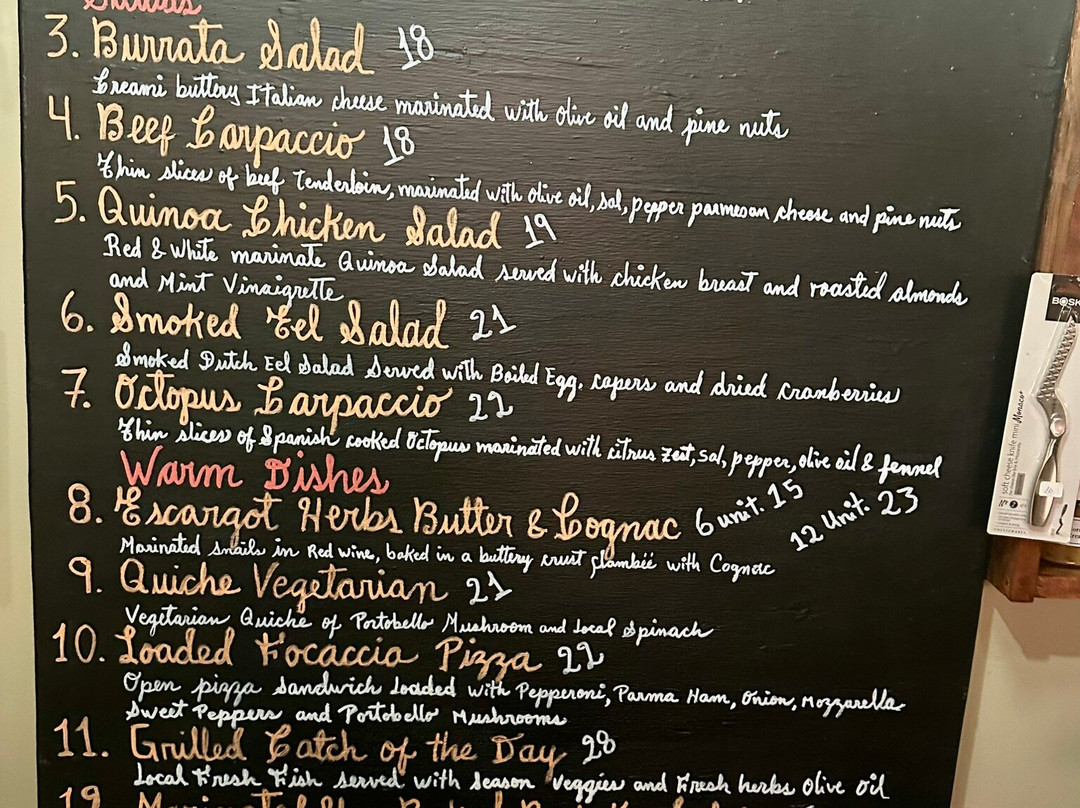 Salads
3. Burrata Salad 18
Creami buttery Italian cheese marinated with olive oil and pine nuts
4. Beef Carpaccio 18
Thin slices of beef Tenderloin, marinated with olive oil, sal, pepper parmesan cheese and pine nuts
5. Quinoa Chicken Salad 19
Red & White marinate Quinoa Salad served with chicken breast and roasted almonds
and Mint Vinaigrette
6. Smoked Eel Salad 21
Smoked Dutch Eel Salad Served with Boiled Egg, capers and dried cranberries
7. Octopus Carpaccio 22
Thin slices of Spanish cooked Octopus marinated with citrus zest, sal, pepper, olive oil & fennel
Warm Dishes
8. Escargot Herbs Butter & Cognac 6 unit. 15
12 Unit. 23
Marinated snails in Red wine, baked in a buttery crust flambéé with Cognac
9. Quiche Vegetarian 21
Vegetarian Quiche of Portobello Mushroom and Local Spinach
10. Loaded Focaccia Pizza 22
Open pizza Sandwich Loaded with Pepperoni, Parma Ham, Onion, Mozzarella
Sweet Peppers and Portobello Mushrooms
11. Grilled Catch of the Day 28
Local Fresh Fish served with Season Veggies and Fresh herbs Olive oil
BOSK
soft cheese knife mini Monaco